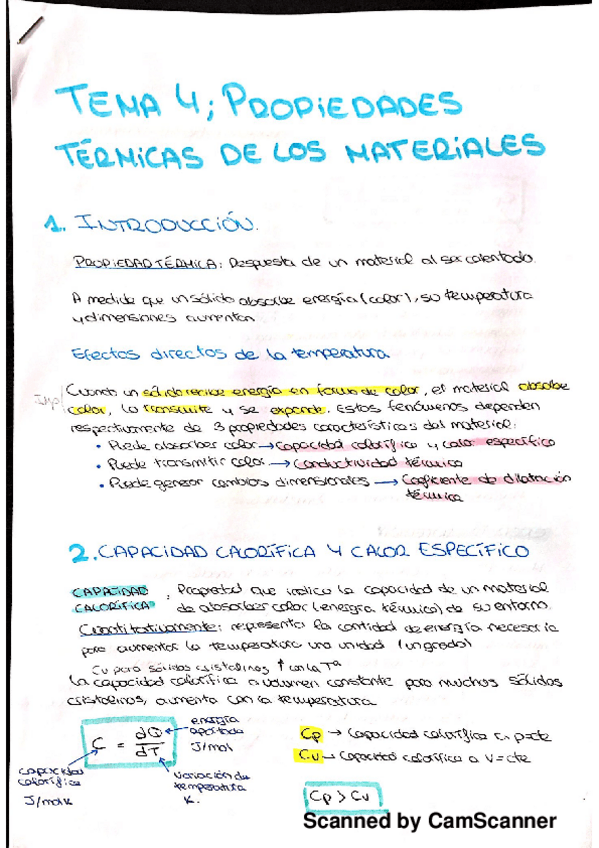 TEMA 4; PROPIEDADES
TÉRMICAS DE LOS MATERIALES
1. INTRODUCCIÓN.
PROPIEDAD TÉRMICA: Respuesta de un material al ser calentado.
A medida que un sólido absorbe energía (calor), su temperatura
y dimensiones aumentan
Efectos directos de la temperatura
Cuando un sólido recibe energía en forma de calor, el material absorbe
calor, lo transmite y se expande. Estos fenómenos dependen
respectivamente de 3 propiedades características del material:
• Puede absorber calor → Capacidad calorífica y calor específico
• Puede transmitir calor → Conductividad térmica
• Puede generar cambios dimensionales → Coeficiente de dilatación
térmica
2. CAPACIDAD CALORÍFICA Y CALOR ESPECÍFICO
CAPACIDAD CALORÍFICA, Propiedad que indica la capacidad de un material
de absorber calor (energía térmica) de su entorno.
Cuantitativamente: representa la cantidad de energía necesaria
para aumentar la temperatura una unidad (un grado)
Cv para sólidos cristalinos ↑ con la Tª
La capacidad calorífica a volumen constante para muchos sólidos
cristalinos, aumenta con la temperatura
C = dQ/dT
energía
aportada
J/mol
capacidad
calorífica
J/molK
variación de
temperatura
K.
Cp → Capacidad calorífica a p=cte
Cv → Capacidad calorífica a V=cte
Cp > Cv
Scanned by CamScanner